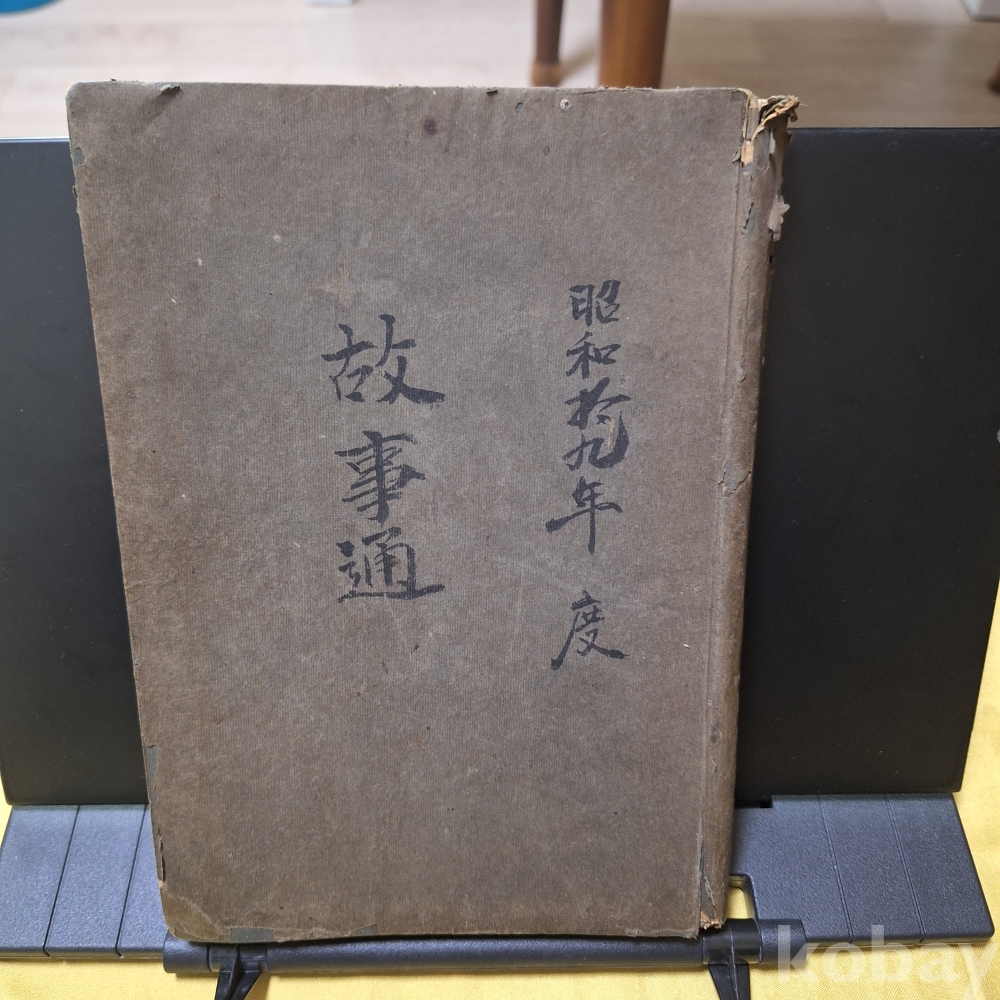 昭和拾九年度
故事通
kobay